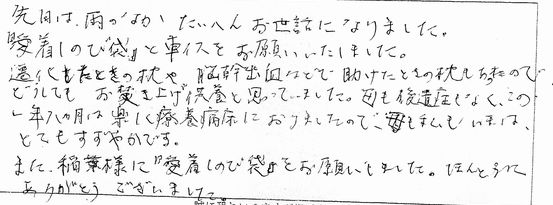 先日は、雨のなか たいへん お世話になりました。
『愛着しのび袋』と車イスを お願いいたしました。
遷化したときの枕や 脳幹出血などで 助けたときの枕もあったので
どうしても お焚き上げ供養と思っていました。母も後遺症もなく、この
一年八ヶ月は 楽しく療養病床に おりましたので、母も私も いまは、
とてもすずやかです。
また、稲葉様に『愛着しのび袋』をお願いしました。ほんとうに
ありがとう ございました